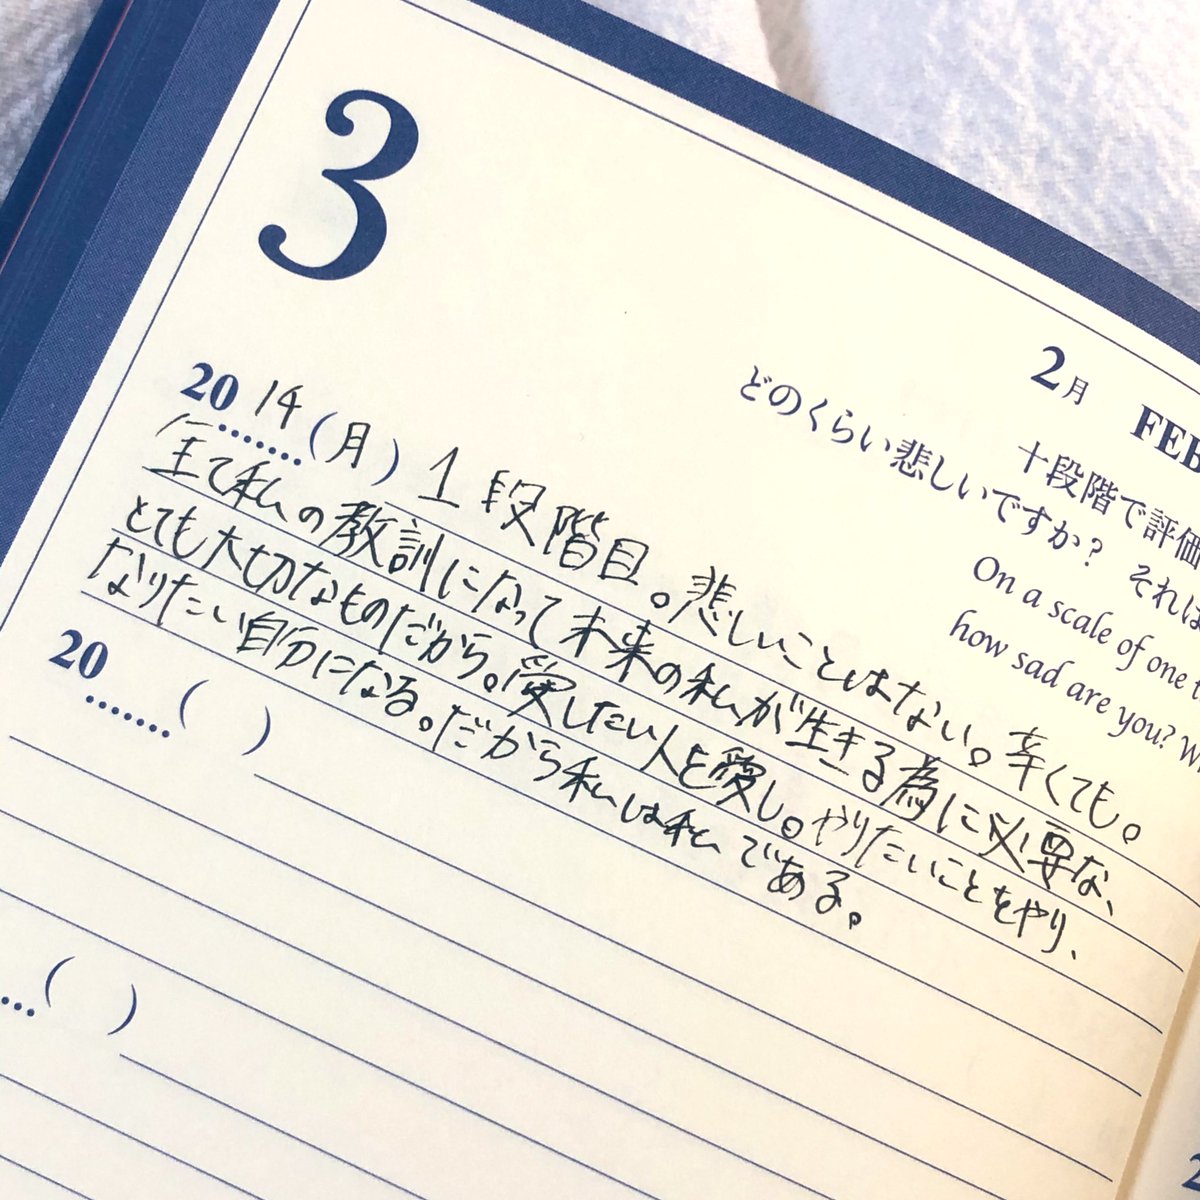 3
2月 FEB
十段階で評価
どのくらい悲しいですか? それは
On a scale of one t
how sad are you? W
20 14 (月) 1段階目。悲しいことはない。辛くても。
全て私の教訓になって未来の私が生きる為に必要な、
とても大切なものだから。愛したい人を愛し。やりたいことをやり、
なりたい自分になる。だから私は私である。
20 ( )
( )
2